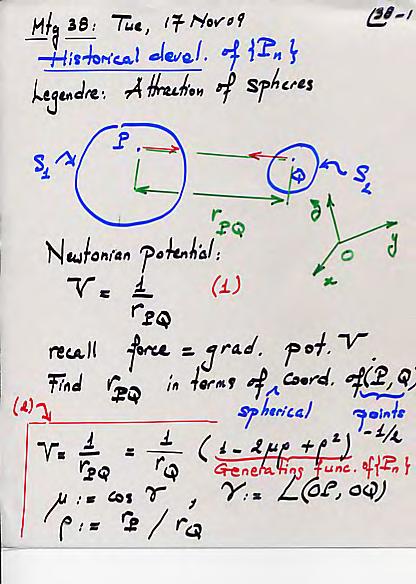 Mtg 38: Tue, 17 Nov 09
38-1
Historical devel. of {Pn}
Legendre: Attraction of spheres
P
S1
Q
S2
r_PQ
z
y
O
x
Newtonian potential:
V = 1/r_PQ (1)
recall force = grad. pot. V.
Find r_PQ in terms of coord. of (P, Q)
spherical points
(2)
V = 1/r_PQ = 1/r_Q (1 - 2μρ + ρ²)^-1/2
Generating func. of {Pn}
μ := cos γ , γ := ∠(OP, OQ)
ρ := r_P / r_Q